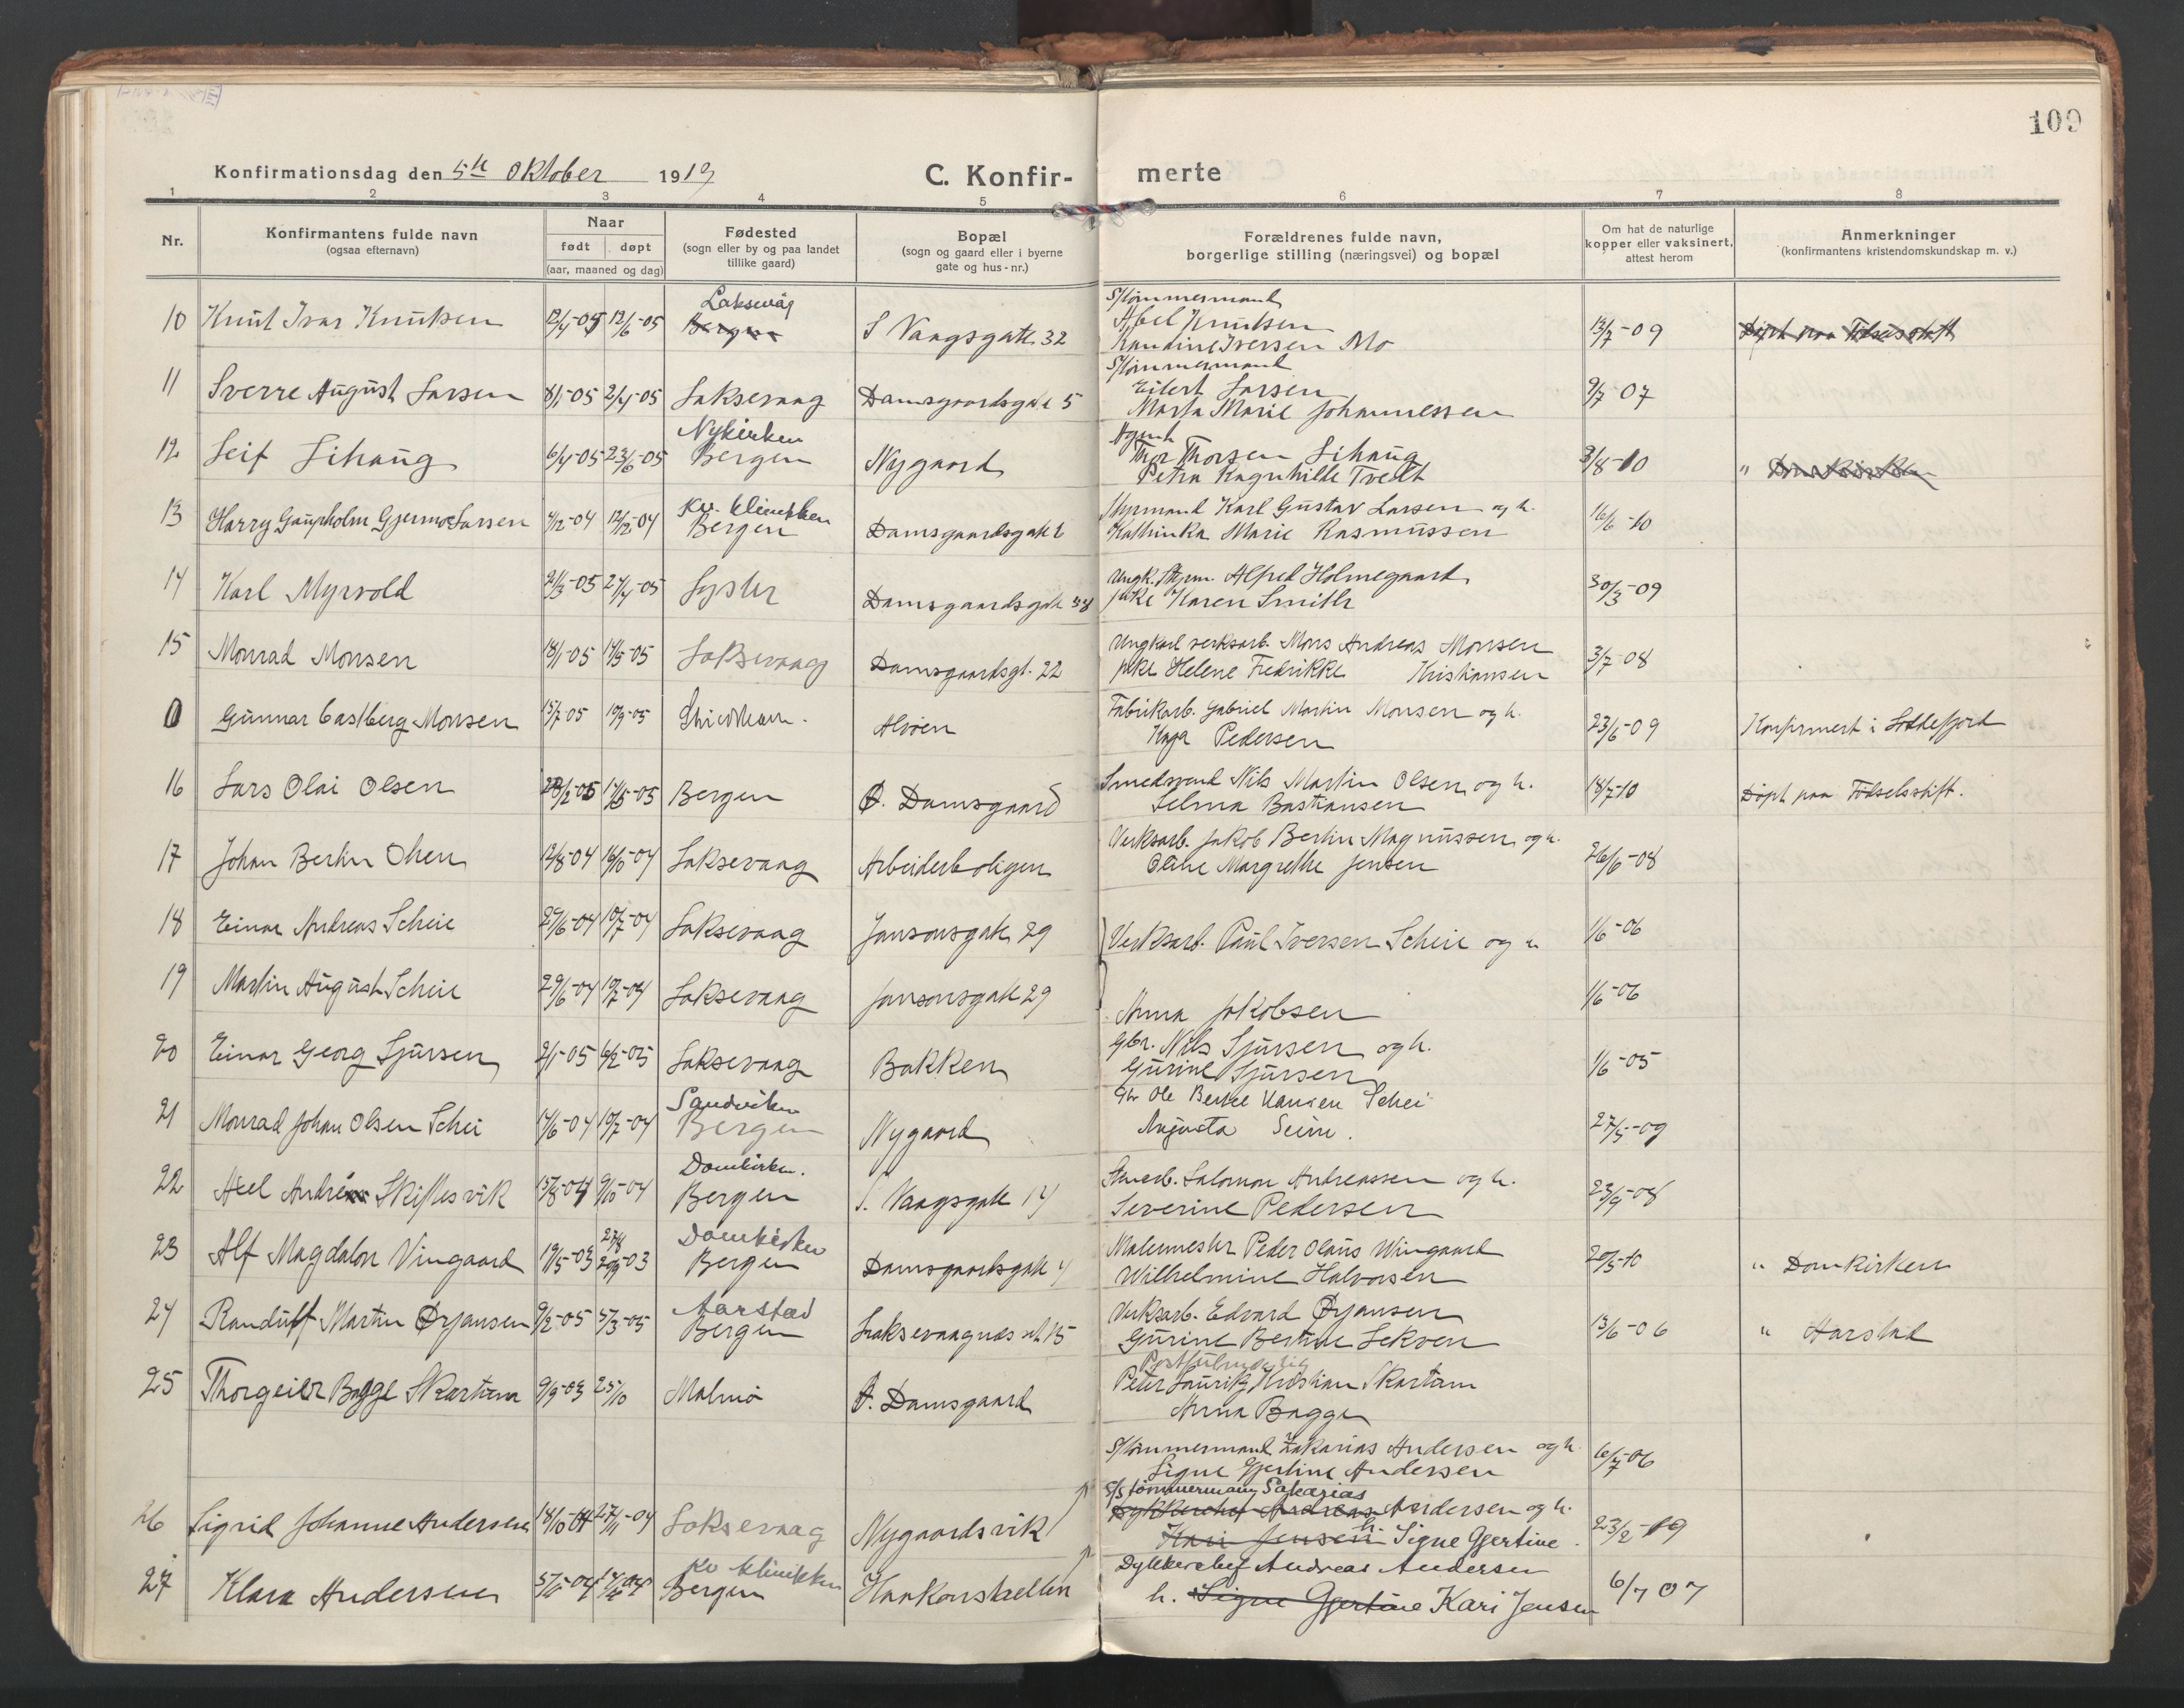 109
Konfirmationsdag den 5te Oktober 1919
C. Konfir- merte
1 2 3 4 5 6 7 8
Nr.
Konfirmantens fulde navn
(ogsaa efternavn)
Naar
født døpt
(aar, maaned og dag)
Fødested
(sogn eller by og paa landet
tillike gaard)
Bopæl
(sogn og gaard eller i byerne
gate og hus-nr.)
Forældrenes fulde navn,
borgerlige stilling (næringsvei) og bopæl
Om hat de naturlige
kopper eller vaksinert,
attest herom
Anmerkninger
(konfirmantens kristendomskundskap m. v.)
10 Knut Ivar Knutsen 12/4-05 12/6-05 Laksevåg Bergen S Vaagsgate 32
S/tømmermand
Abel Knutsen
Iversen Mo
13/7-09 Døpt paa Fødselsstift
11 Sverre August Larsen 8/1-05 2/4-05 Laksevaag Damsgaardsgate 5
S/tømmermand
Eilert Larsen
Marta Marie Johannessen
9/7 07
12 Leif Lihaug 6/4-05 23/6-05 Nykirken Bergen Nygaard
Agent
Thor Thorsen Lihaug
Petra Ragnhilde Tvedt
3/8-10 " Domkirken
13 Harry Gaupholm Gjermoe Larsen 4/12-04 12/12-04 Kv. klinikken Bergen Damsgaardsgate
Styrmand Karl Gustav Larsen og h.
Kathinka Marie Rasmussen
16/6-10
14 Karl Myrvold 2/3-05 24/4-05 Lyster Damsgaardsgate 58
Ungk. Styrm. Alfred Holmegaard
pike Karen Smith
30/3-09
15 Monrad Monsen 18/1-05 14/5-05 Laksevaag Damsgaardsgt. 22
Ungkarl verksarb. Mons Andreas Monsen
pike Helene Fredrikke Kristiansen
3/7-08
0 Gunnar Castberg Monsen 15/7-05 10/9-05 Alvøen
Fabrikarb. Gabriel Martin Monsen og h.
Haga Pedersen
23/6-09 Konfirmert i Loddefjord
16 Lars Olai Olsen 28/2-05 14/5-05 Bergen Ø. Damsgaard
Smedsvend Nils Martin Olsen og h.
Selma Bastiansen
18/7-10 Døpt paa Fødselsstift.
17 Johan Bertin Olsen 12/8-04 16/10-04 Laksevaag Arbeiderboligen
Verksarb. Jakob Bertin Magnussen og h.
Oline Margrethe Jensen
26/6-08
18 Einar Andreas Scheie 29/6-04 10/7-04 Laksevaag Jansonsgate 29
Verksarb. Paul Iversen Scheie og h
1/6-06
19 Martin August Scheie 29/6-04 10/7-04 Laksevaag Jansonsgate 29
Anna Jakobsen
1/6-06
20 Einar Georg Sjursen 2/1-05 6/2-05 Laksevaag Bakken
Gbr. Nils Sjursen og h.
Gurine Sjursen
1/6-05
21 Monrad Johan Olsen Schei 14/6-04 10/7-04 Sandviken Bergen Nygaard
Gbr Ole Hansen Schei
Augusta
27/5-09
22 Axel Andreas Skiftesvik 15/8-04 9/10-04 Domkirken. Bergen S. Vaagsgate 14
Stenarb. Salomon Andreassen og h.
Severine Pedersen
23/9-08
23 Alf Magdalon Vingaard 19/5-03 27/8 20/9-03 Domkirken Bergen Damsgaardsgate 4
Malermester Peder Olaus Wingaard
Wilhelmine Halvorsen
20/5-10 " Domkirken
24 Randulff Martin Ørjansen 9/2-05 5/3-05 Aarstad Bergen Laksevaagnes nt. 15
Verksarb. Edvard Ørjansen
Gurine Bertine Lekven
13/6-06 " Aarstad
25 Thorgeir Bagge Skartum 9/9-03 25/10 Malmø Ø. Damsgaard
Postfuldmægtig
Peter Lauritz Kristian Skartum
Anna Bagge
S/tømmermand Zakarias Andersen og h.
Signe Gjertine Andersen
6/7-06
26 Sigrid Johanne Andersen 18/10-04 27/11-04 Laksevaag Nygaardsvik
S/S tømmermand Sakarias
Dykkerchef Andreas Andersen og h.
Kari Jensen h. Signe Gjertine
23/2-19
27 Klara Andersen Kv klinikken Bergen Haakonshellen
Dykkerchef Andreas Andersen
h. Signe Gjertine Kari Jensen
6/7 07